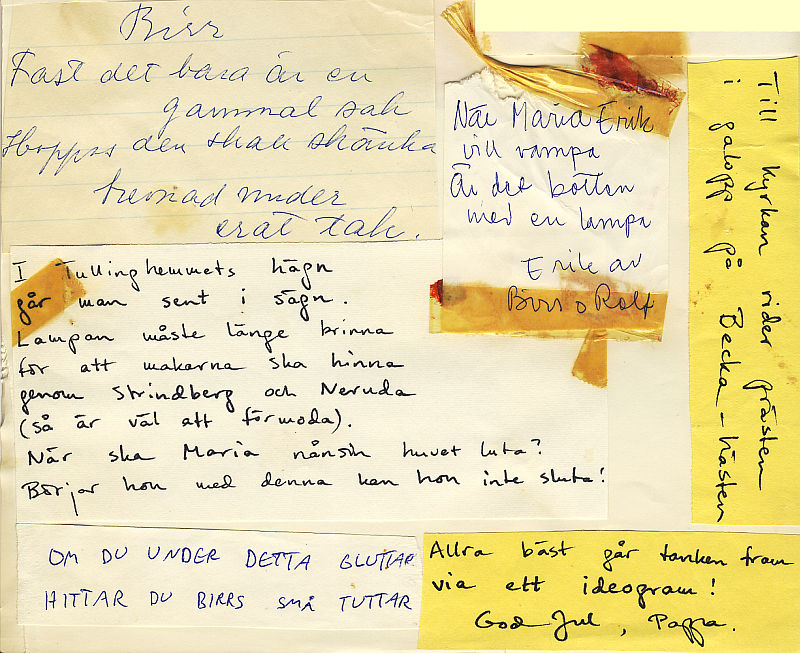 Birr
Fast det bara är en
gammal sak
Hoppas den skall skänka
trevnad under
erat tak.
När Maria Erik
vill vampa
Är det botten
med en lampa
Erik av
Birrs o Rolf
Till kyrkan rider prästen
i galopp på Becka-hästen
I Tullinghemmets hägn
går man sent i sägn.
Lampan måste länge brinna
för att makarna ska hinna
genom Strindberg och Neruda
(så är väl att förmoda).
När ska Maria nånsin huvet luta?
Börjar hon med denna kan hon inte sluta!
OM DU UNDER DETTA GLUTTAR
HITTAR DU BIRRS SMÅ TUTTAR
Allra bäst går tanken fram
via ett ideogram!
God Jul, Pappa.